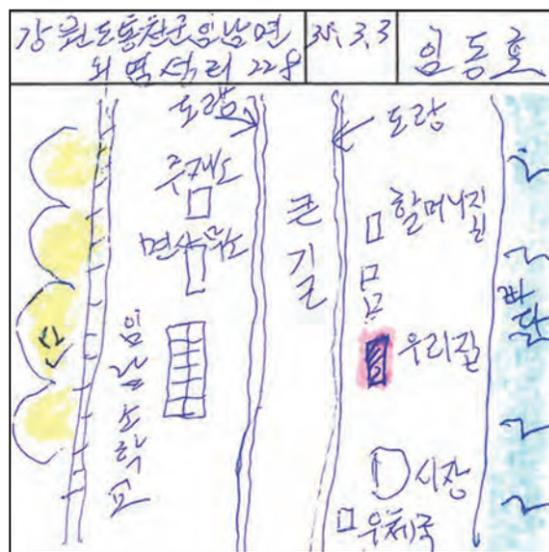 강원도통천군임남면
외염성리 228
35.3.3
임동호
도랑
도랑
주재소
면사무소
큰길
할머니집
우리집
바닷
임남소학교
시장
우체국